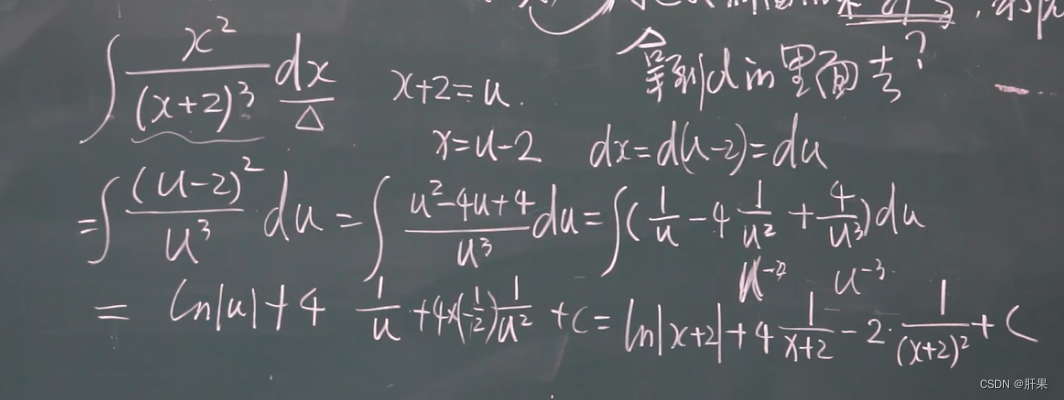 ∫ x²/(x+2)³ dx  x+2=u.  拿到d的里面去?
△
x=u-2  dx=d(u-2)=du
=∫ (u-2)²/u³ du = ∫ (u²-4u+4)/u³ du = ∫(1/u - 4 1/u² + 4/u³)du
u⁻² u⁻³
= ln|u| + 4 1/u + 4×(-1/2) 1/u² + C = ln|x+2| + 4 1/(x+2) - 2· 1/(x+2)² + C
CSDN @肝果